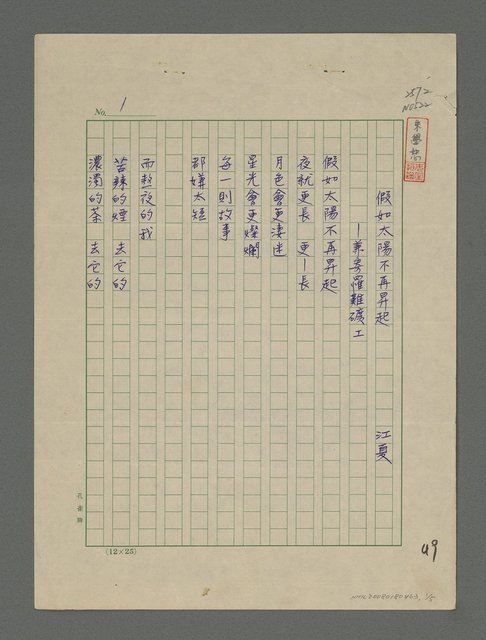 2572
N0522
No. 1
假如太陽不再昇起
江夏
—兼寄罹難礦工
假如太陽不再昇起
夜就更長 更—長
月色會更淒迷
星光會更燦爛
每一則故事
都嫌太短
而熬夜的我
苦辣的煙 去它的
濃濁的茶 去它的
孔雀牌
(12×25)
49